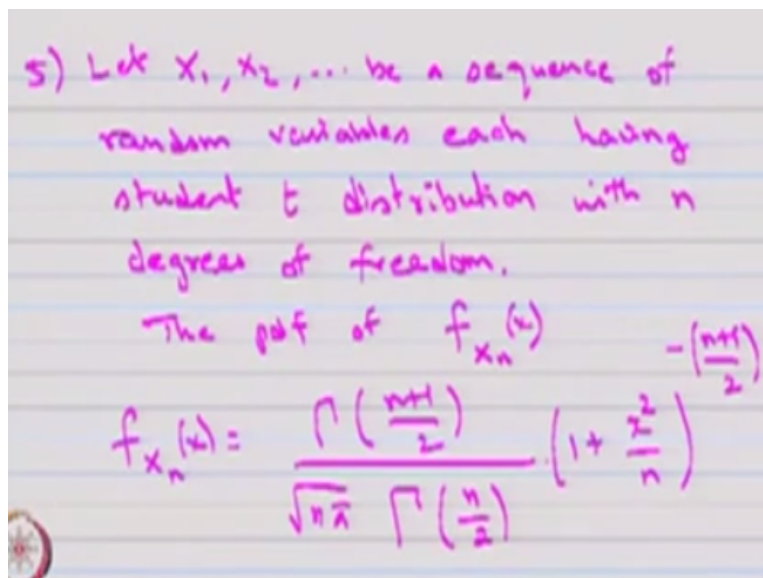 5) Let X₁, X₂, ... be a sequence of
random variables each having
student t distribution with n
degrees of freedom.
The pdf of f_{X_n}(x)
f_{X_n}(x) = Γ((n+1)/2) / (√(nπ) Γ(n/2)) · (1 + x²/n)^{-((n+1)/2)}